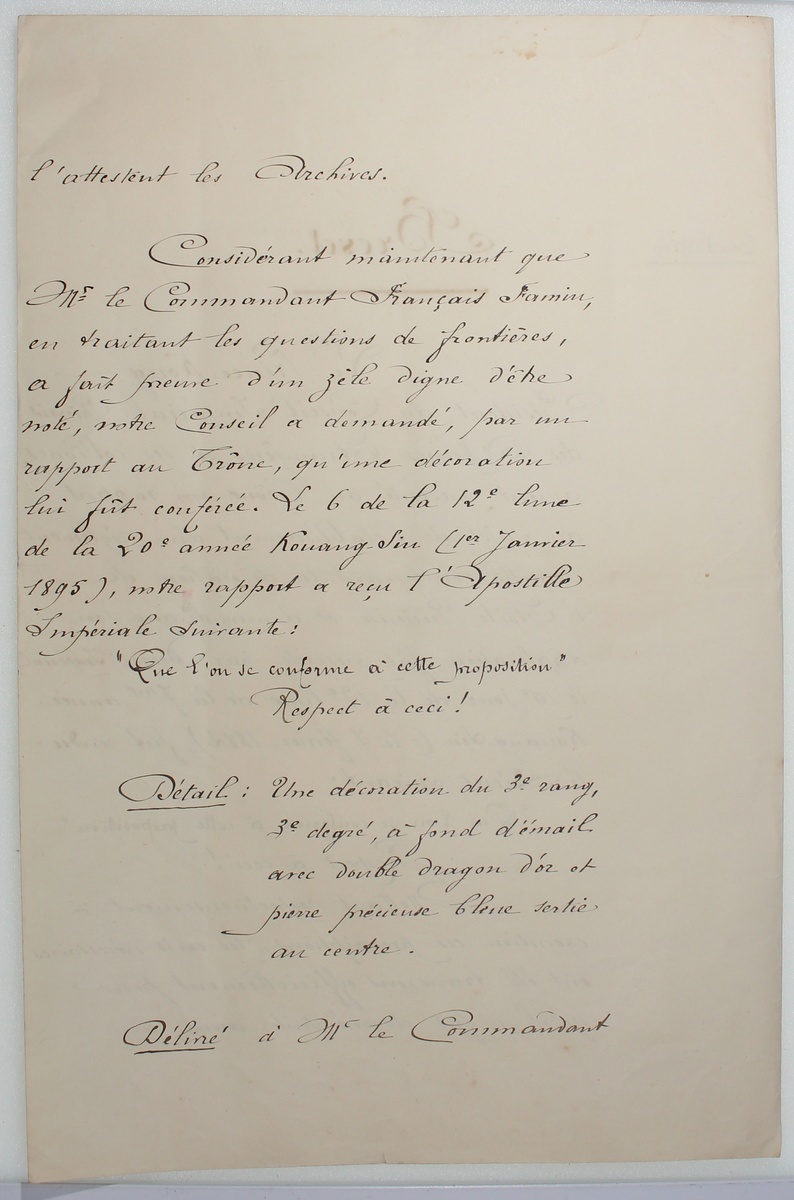 l'attestent les Archives.
Considérant maintenant que
Mr le Commandant Français Famin,
en traitant les questions de frontières,
a fait preuve d'un zèle digne d'être
noté, notre Conseil a demandé, par un
rapport au Trône, qu'une décoration
lui fût conférée. Le 6 de la 12e lune
de la 20e année Kouang-Siu (1er Janvier
1895), notre rapport a reçu l'Apostille
Impériale suivante:
"Que l'on se conforme à cette proposition"
Respect à ceci!
Détail: Une décoration du 3e rang,
3e degré, à fond d'émail
avec double dragon d'or et
pierre précieuse bleue sertie
au centre.
Délivré à Mr le Commandant